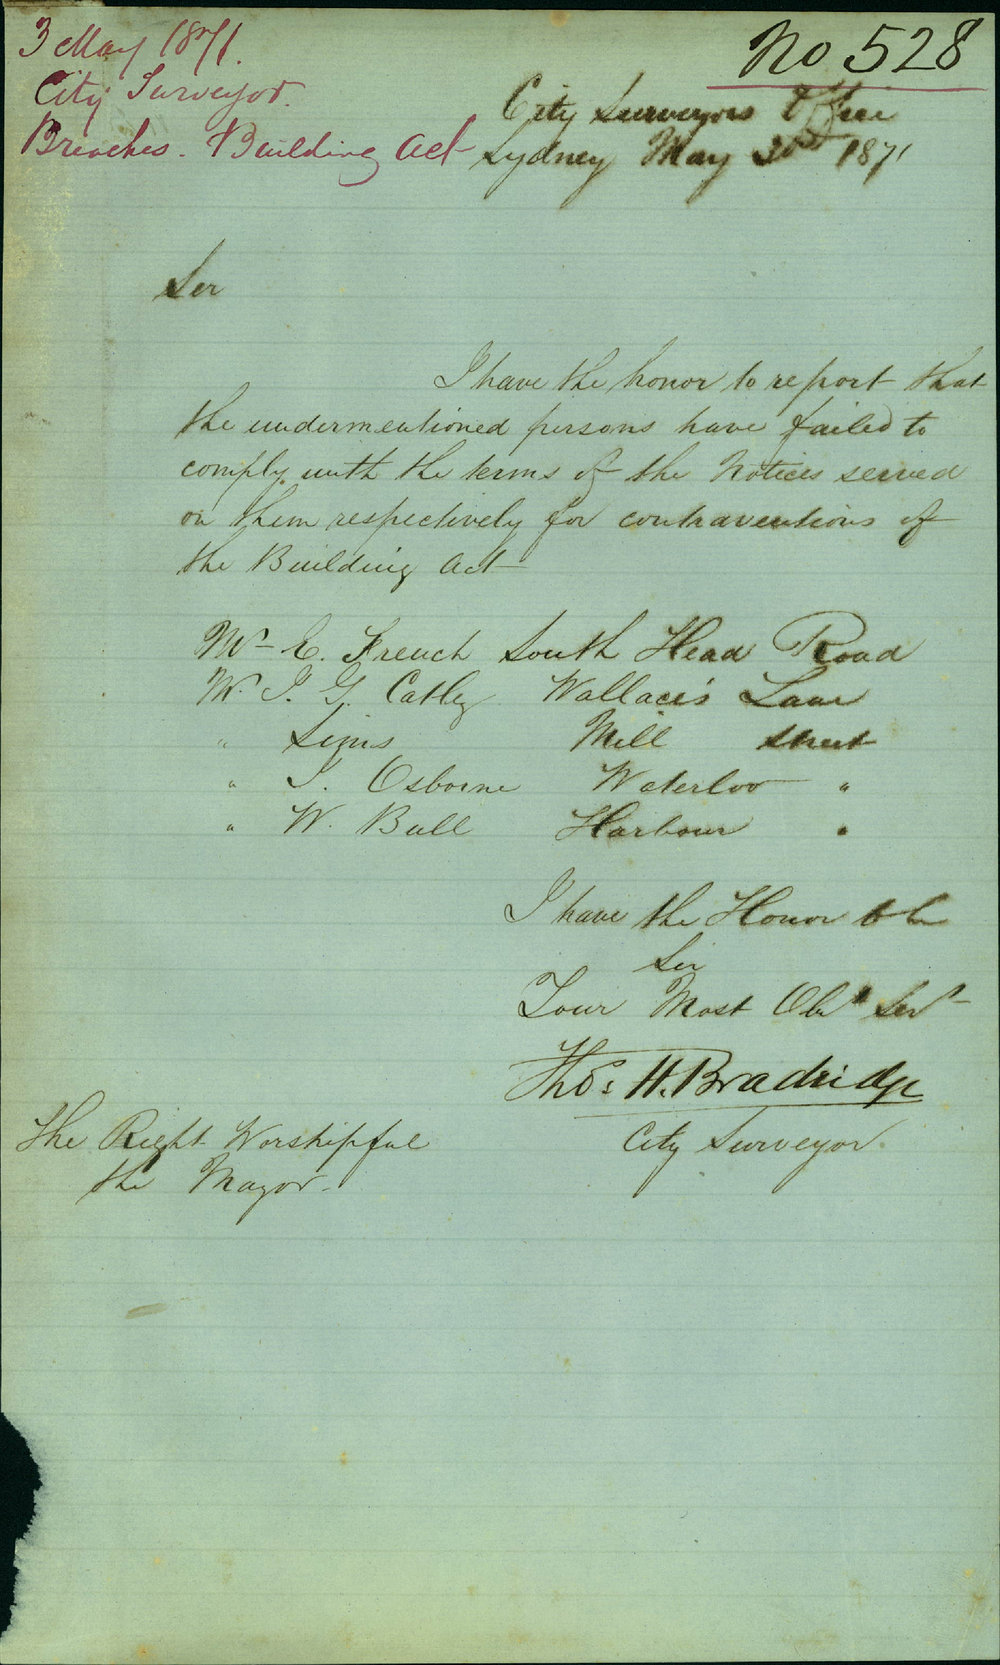 3 May 1871.
City Surveyor.
Breaches. Building Act
No 528
City Surveyors Office
Sydney May 3rd 1871
Sir
I have the honor to report that
the undermentioned persons have failed to
comply with the terms of the Notices served
on them respectively for contraventions of
the Building Act
Mr E. French South Head Road
Mr. J. G. Catley Wallace's Lane
" Sims Mill Street
" J. Osborne Waterloo "
" W. Bull Harbour "
I have the Honor to be
Sir
Your Most Obt Servt
Thos H. Bradridge
City Surveyor.
The Right Worshipful
the Mayor.